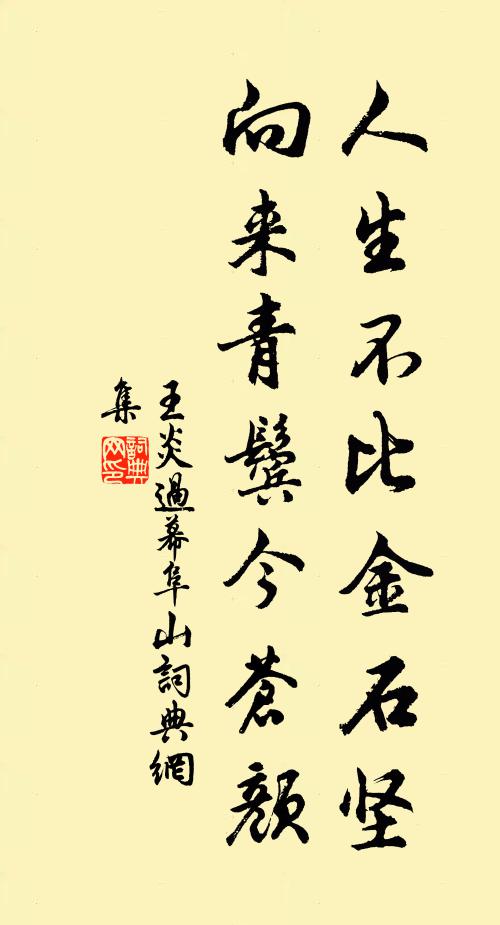 人生不比金石坚
向来青鬓今苍颜
王炎過幕阜山詞典網
集
詞典
网印